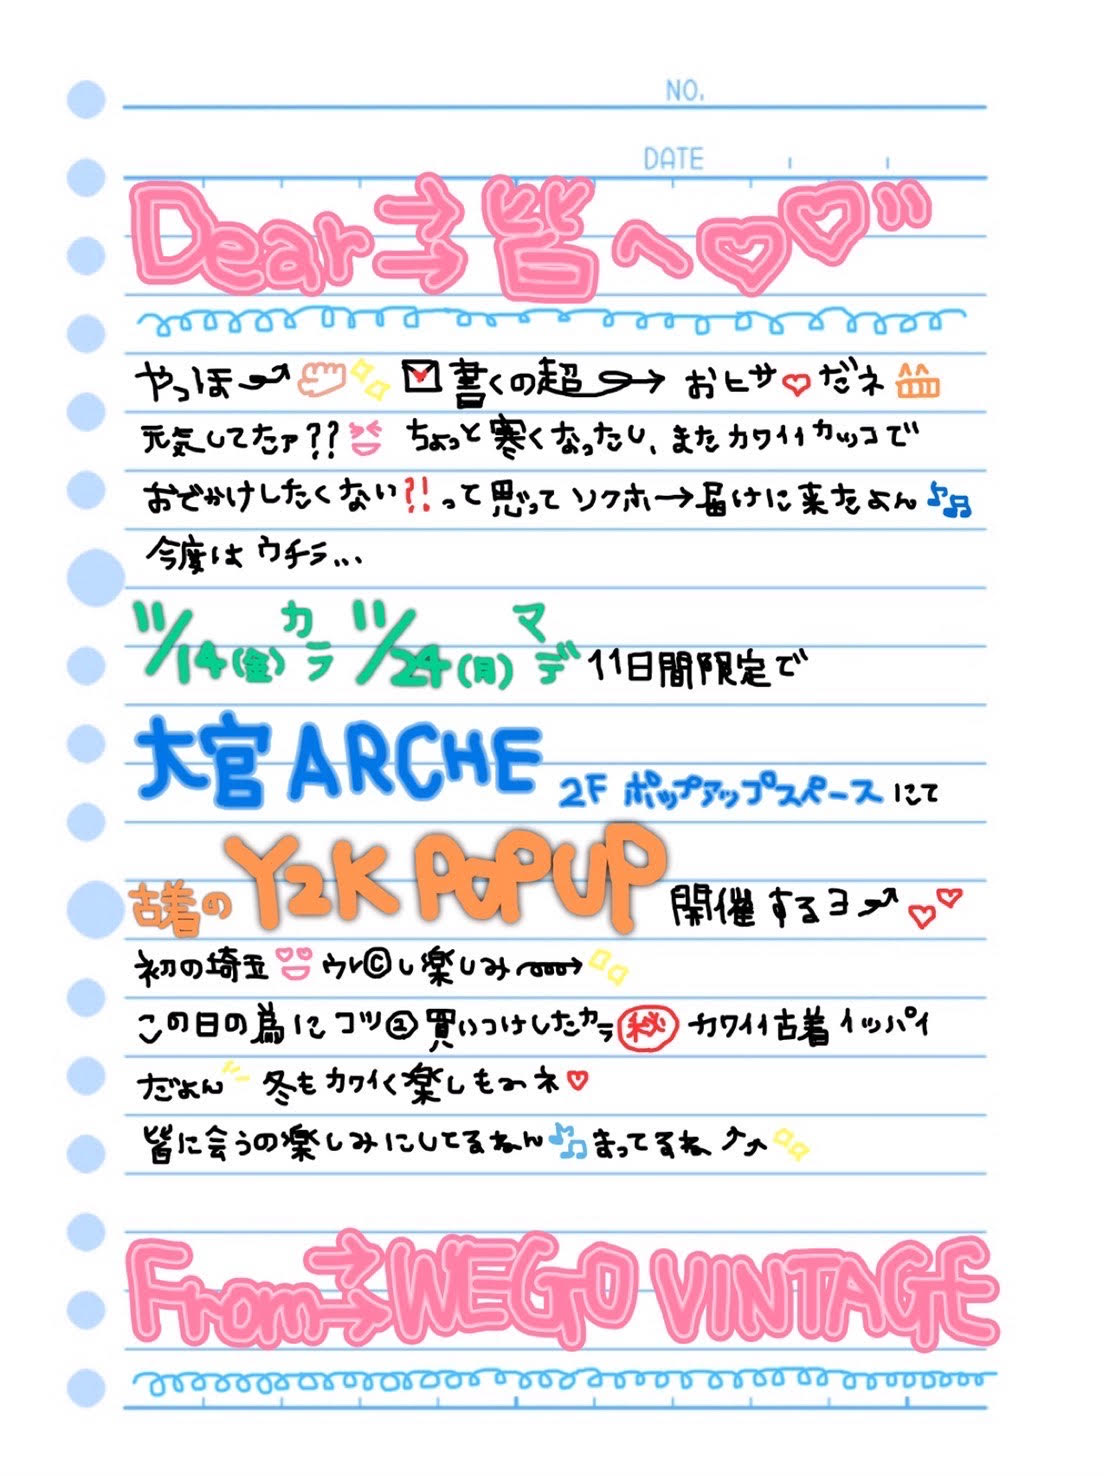 NO.
DATE
Dear→→皆へ♡♡"
やっほ〜↗ 書くの超〜→ おヒサ♡だネ
元気してたァ?? ちょっと寒くなったし、またカワイイカッコで
おでかけしたくない?!って思ってソクホ→届けに来たよん♪♫
今度はウチラ...
11/14(金)カラ11/24(月)マデ11日間限定で
大宮ARCHE 2F ポップアップスペースにて
古着のY2K POPUP開催するヨ〜↗♡♡
初の埼玉 ウレ©し楽しみ〜→
この日の為にコツ②買いつけしたカラ㊙カワイイ古着イッパイ
だよん 冬もカワイく楽しもーネ♡
皆に会うの楽しみにしてるねん♪♫まってるね↗↗
From→→WEGO VINTAGE